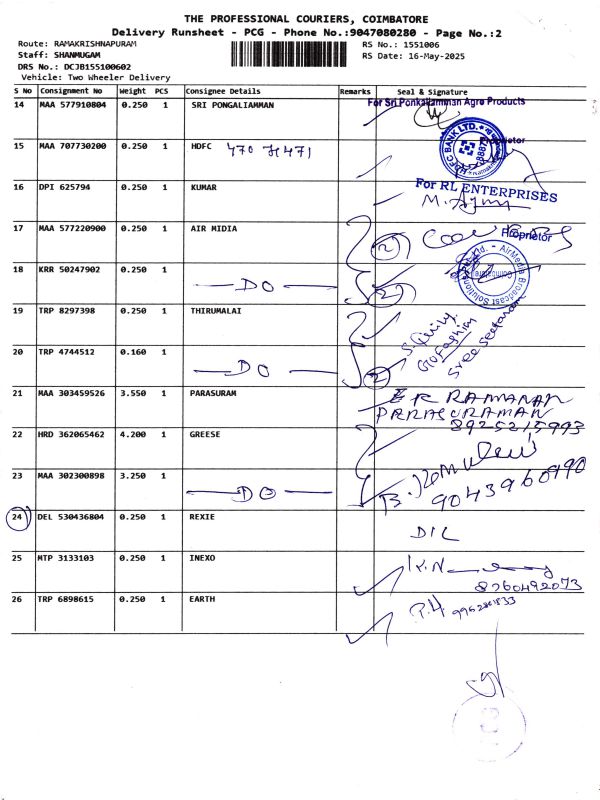 THE PROFESSIONAL COURIERS, COIMBATORE
Delivery Runsheet - PCG - Phone No.:9047080280 - Page No.:2
Route: RAMAKRISHNAPURAM
RS No.: 1551006
Staff: SHANMUGAM
RS Date: 16-May-2025
DRS No.: DCJB155100602
Vehicle: Two Wheeler Delivery
S No Consignment No Weight PCS Consignee Details Remarks Seal & Signature
14 MAA 577910804 0.250 1 SRI PONGALIAMMAN
For Sri Ponkaliamman Agro Products
Proprietor
15 MAA 707730200 0.250 1 HDFC 470 H471
HDFC BANK LTD.
16 DPI 625794 0.250 1 KUMAR
For RL ENTERPRISES
Proprietor
17 MAA 577220900 0.250 1 AIR MIDIA
(2)
18 KRR 50247902 0.250 1 —DO—
(2)
AirMedia Broadcast Solutions Pvt. Ltd.
Coimbatore
19 TRP 8297398 0.250 1 THIRUMALAI
Go Fashion
Sree Seetaram
20 TRP 4744512 0.160 1 —DO—
(2)
21 MAA 303459526 3.550 1 PARASURAM
ER RAMANAN
PARASURAMAN
8925215993
22 HRD 362065462 4.200 1 GREESE
23 MAA 302300898 3.250 1 —DO—
9043960990
24 DEL 530436804 0.250 1 REXIE
D/L
25 MTP 3133103 0.250 1 INEXO
K.N
8760492073
26 TRP 6898615 0.250 1 EARTH
P.H